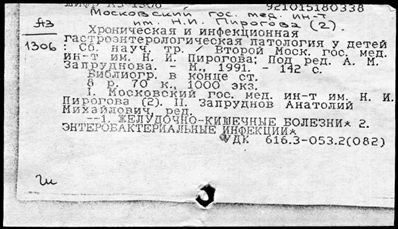 921015180338
Московский гос. мед. ин-т
им. Н.И. Пирогова (2).
Хроническая и инфекционная
гастроэнтерологическая патология у детей
1306 : Сб. науч. тр. / Второй Моск. гос. мед.
ин-т им. Н. И. Пирогова; Под ред. А. М.
Запруднова. - М., 1991. - 142 с.
Библиогр. в конце ст.
8 р. 70 к., 1000 экз.
I. Московский гос. мед. ин-т им. Н. И.
Пирогова (2). II. Запруднов Анатолий
Михайлович, ред.
--1. ЖЕЛУДОЧНО-КИШЕЧНЫЕ БОЛЕЗНИ* 2.
ЭНТЕРОБАКТЕРИАЛЬНЫЕ ИНФЕКЦИИ*
УДК 616.3-053.2(082)